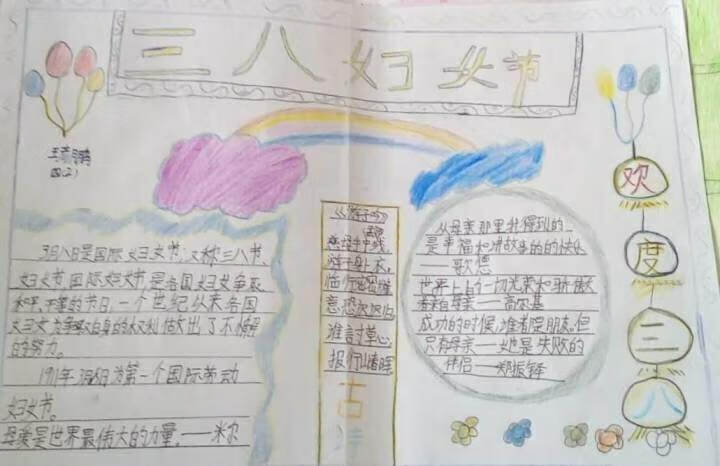 三八妇女节
(四.2)
3月八日是国际妇女节,又称三八节,
妇女节.国际妇女节,是各国妇女争取
和平、平等的节日,一个世纪以来各国
妇女为争取自身的权利做出了不懈
的努力。
1911年3月8日为第一个国际劳动
妇女节。
母爱是世界最伟大的力量。——米尔
《游子吟》
慈母手中线,
游子身上衣,
临行密密缝
意恐迟迟归,
谁言寸草心,
报得三春晖。
古
诗
从母亲那里我得到的
是幸福和讲故事的快乐
——歌德
世界上的一切光荣和骄傲
来自母亲——高尔基
成功的时候,谁都是朋友。但
只有母亲——她是失败的
伴侣——郑振铎
欢
度
三
八